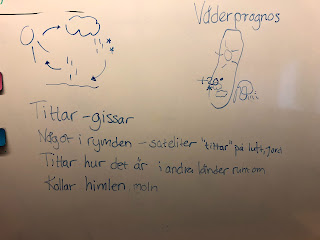 Väderprognos
+20°
Tittar - gissar
Något i rymden - sateliter "tittar" på luft, jord
Tittar hur det är i andra länder runtom
Kollar himlen moln